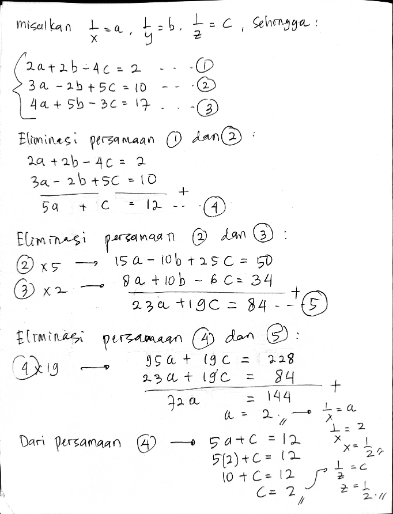 misalkan 1/x = a, 1/y = b, 1/z = c, sehingga:
2a + 2b - 4c = 2 ... ①
3a - 2b + 5c = 10 ... ②
4a + 5b - 3c = 17 ... ③
Eliminasi persamaan ① dan ② :
2a + 2b - 4c = 2
3a - 2b + 5c = 10 +
5a + c = 12 ... ④
Eliminasi persamaan ② dan ③ :
② x5 → 15a - 10b + 25c = 50
③ x2 → 8a + 10b - 6c = 34 +
23a + 19c = 84 ... ⑤
Eliminasi persamaan ④ dan ⑤ :
④ x 19 → 95a + 19c = 228
23a + 19c = 84 +
72a = 144
a = 2 // → 1/x = a
1/x = 2
x = 1/2 //
Dari persamaan ④ → 5a + c = 12
5(2) + c = 12
10 + c = 12
c = 2 // → 1/z = c
z = 1/2 //